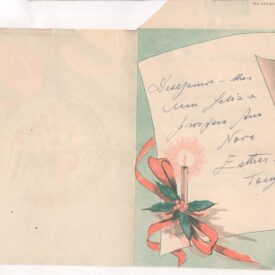 Desejamos-lhes
um feliz e
prospero Ano
Novo
Esther